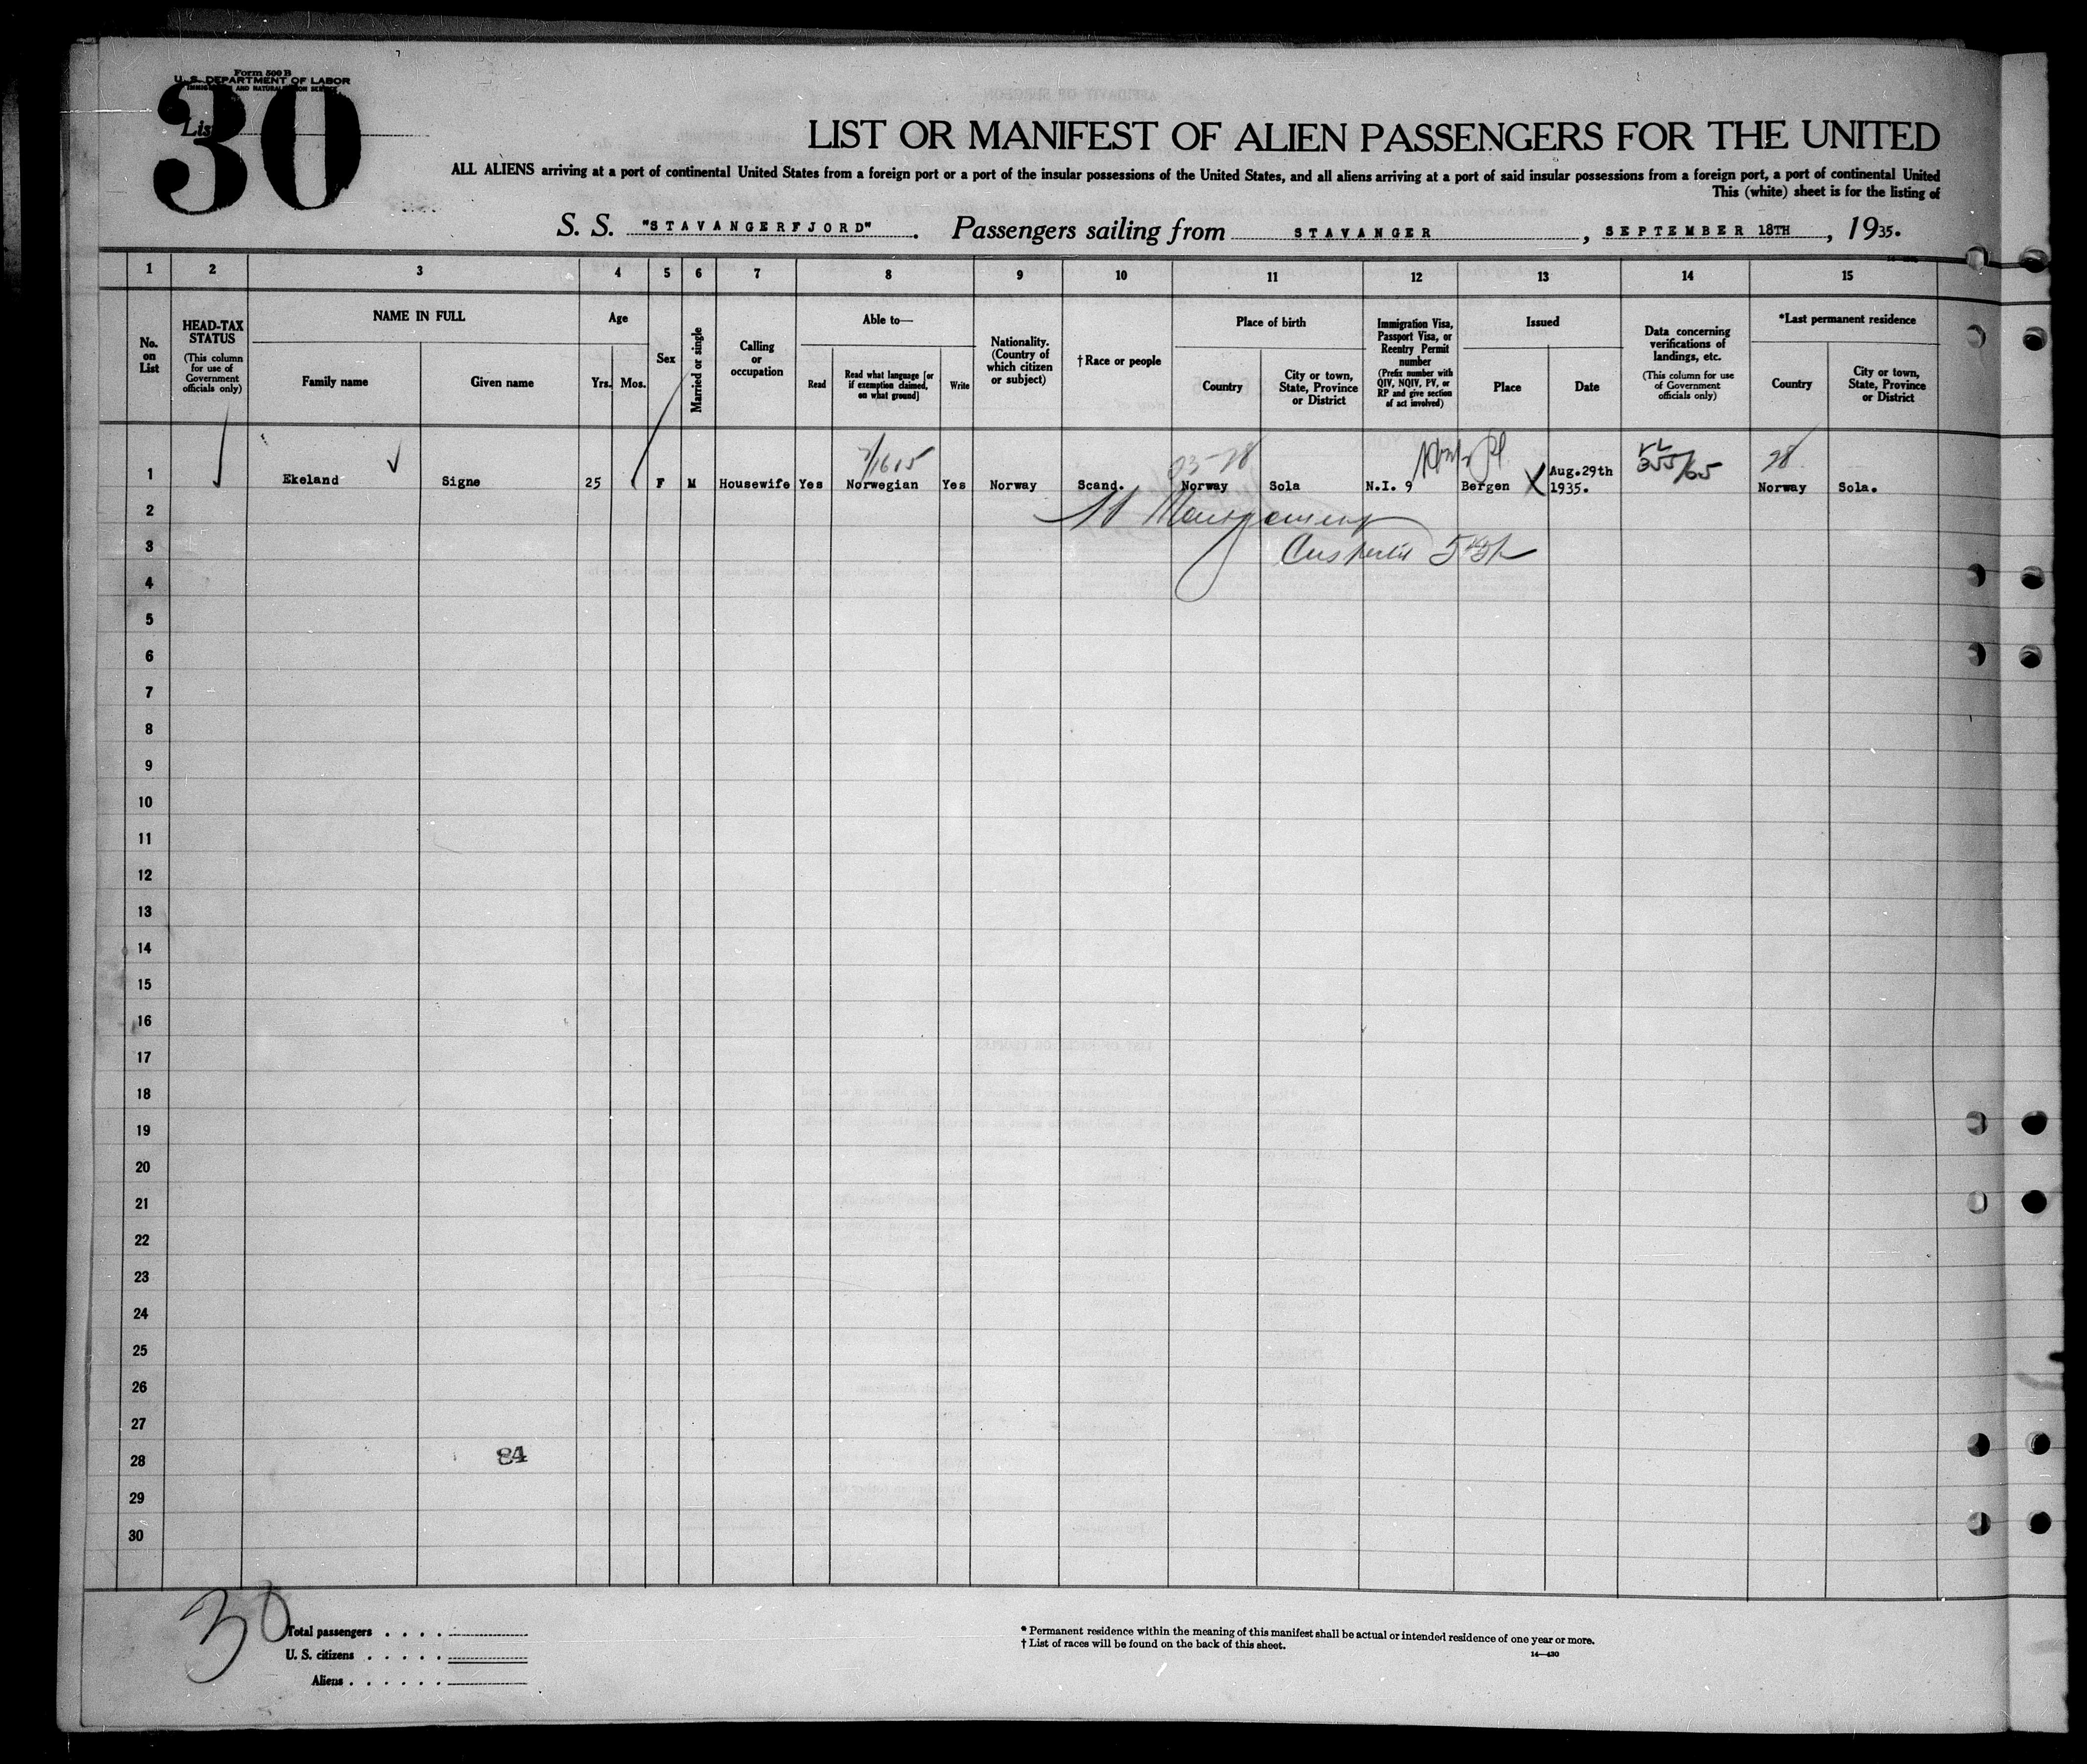 Form 500 B
U. S. DEPARTMENT OF LABOR
IMMIGRATION AND NATURALIZATION SERVICE
List
30
LIST OR MANIFEST OF ALIEN PASSENGERS FOR THE UNITED
ALL ALIENS arriving at a port of continental United States from a foreign port or a port of the insular possessions of the United States, and all aliens arriving at a port of said insular possessions from a foreign port, a port of continental United
This (white) sheet is for the listing of
S. S. "STAVANGERFJORD". Passengers sailing from STAVANGER, SEPTEMBER 18TH, 1935.
1 2 3 4 5 6 7 8 9 10 11 12 13 14 15
No. on List
HEAD-TAX STATUS
(This column for use of Government officials only)
NAME IN FULL
Family name
Given name
Age
Yrs.
Mos.
Sex
Married or single
Calling or occupation
Able to—
Read
Read what language [or if exemption claimed, on what ground]
Write
Nationality. (Country of which citizen or subject)
†Race or people
Place of birth
Country
City or town, State, Province or District
Immigration Visa, Passport Visa, or Reentry Permit number
(Prefix number with QIV, NQIV, PV, or RP and give section of act involved)
Issued
Place
Date
Data concerning verifications of landings, etc.
(This column for use of Government officials only)
*Last permanent residence
Country
City or town, State, Province or District
1 Ekeland Signe 25 F M Housewife Yes Norwegian Yes Norway Scand. Norway Sola N.I. 9 Bergen Aug.29th 1935. Norway Sola.
2
3
4
5
6
7
8
9
10
11
12
13
14
15
16
17
18
19
20
21
22
23
24
25
26
27
28 84
29
30
30
Total passengers
U. S. citizens
Aliens
* Permanent residence within the meaning of this manifest shall be actual or intended residence of one year or more.
† List of races will be found on the back of this sheet.
14—430